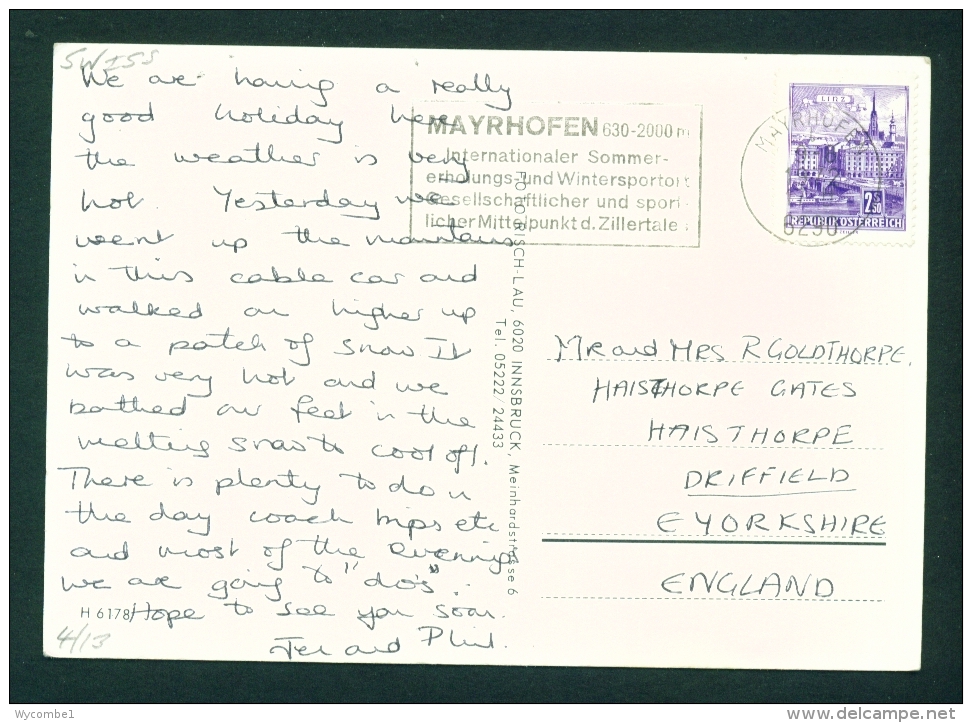 SWISS
We are having a really
good holiday here
the weather is very
hot. Yesterday we
went up the mountains
in this cable car and
walked on higher up
to a patch of snow It
was very hot and we
bathed our feet in the
melting snow to cool off.
There is plenty to do in
the day coach trips etc
and most of the evenings
we are going to "do's".
Hope to see you soon.
Jen and Phil.
H 6178
4/13
MAYRHOFEN 630-2000 m
Internationaler Sommer-
erholungs- und Wintersportort
Gesellschaftlicher und sport-
licher Mittelpunkt d. Zillertales
FOTO RISCH-LAU, 6020 INNSBRUCK, Meinhardstrasse 6
Tel. 05222/24433
LINZ
2S50
REPUBLIK ÖSTERREICH
MAYRHOFEN
6290
Mr and Mrs R GOLDTHORPE,
HAISTHORPE GATES
HAISTHORPE
DRIFFIELD
E YORKSHIRE
ENGLAND
Wycombe1